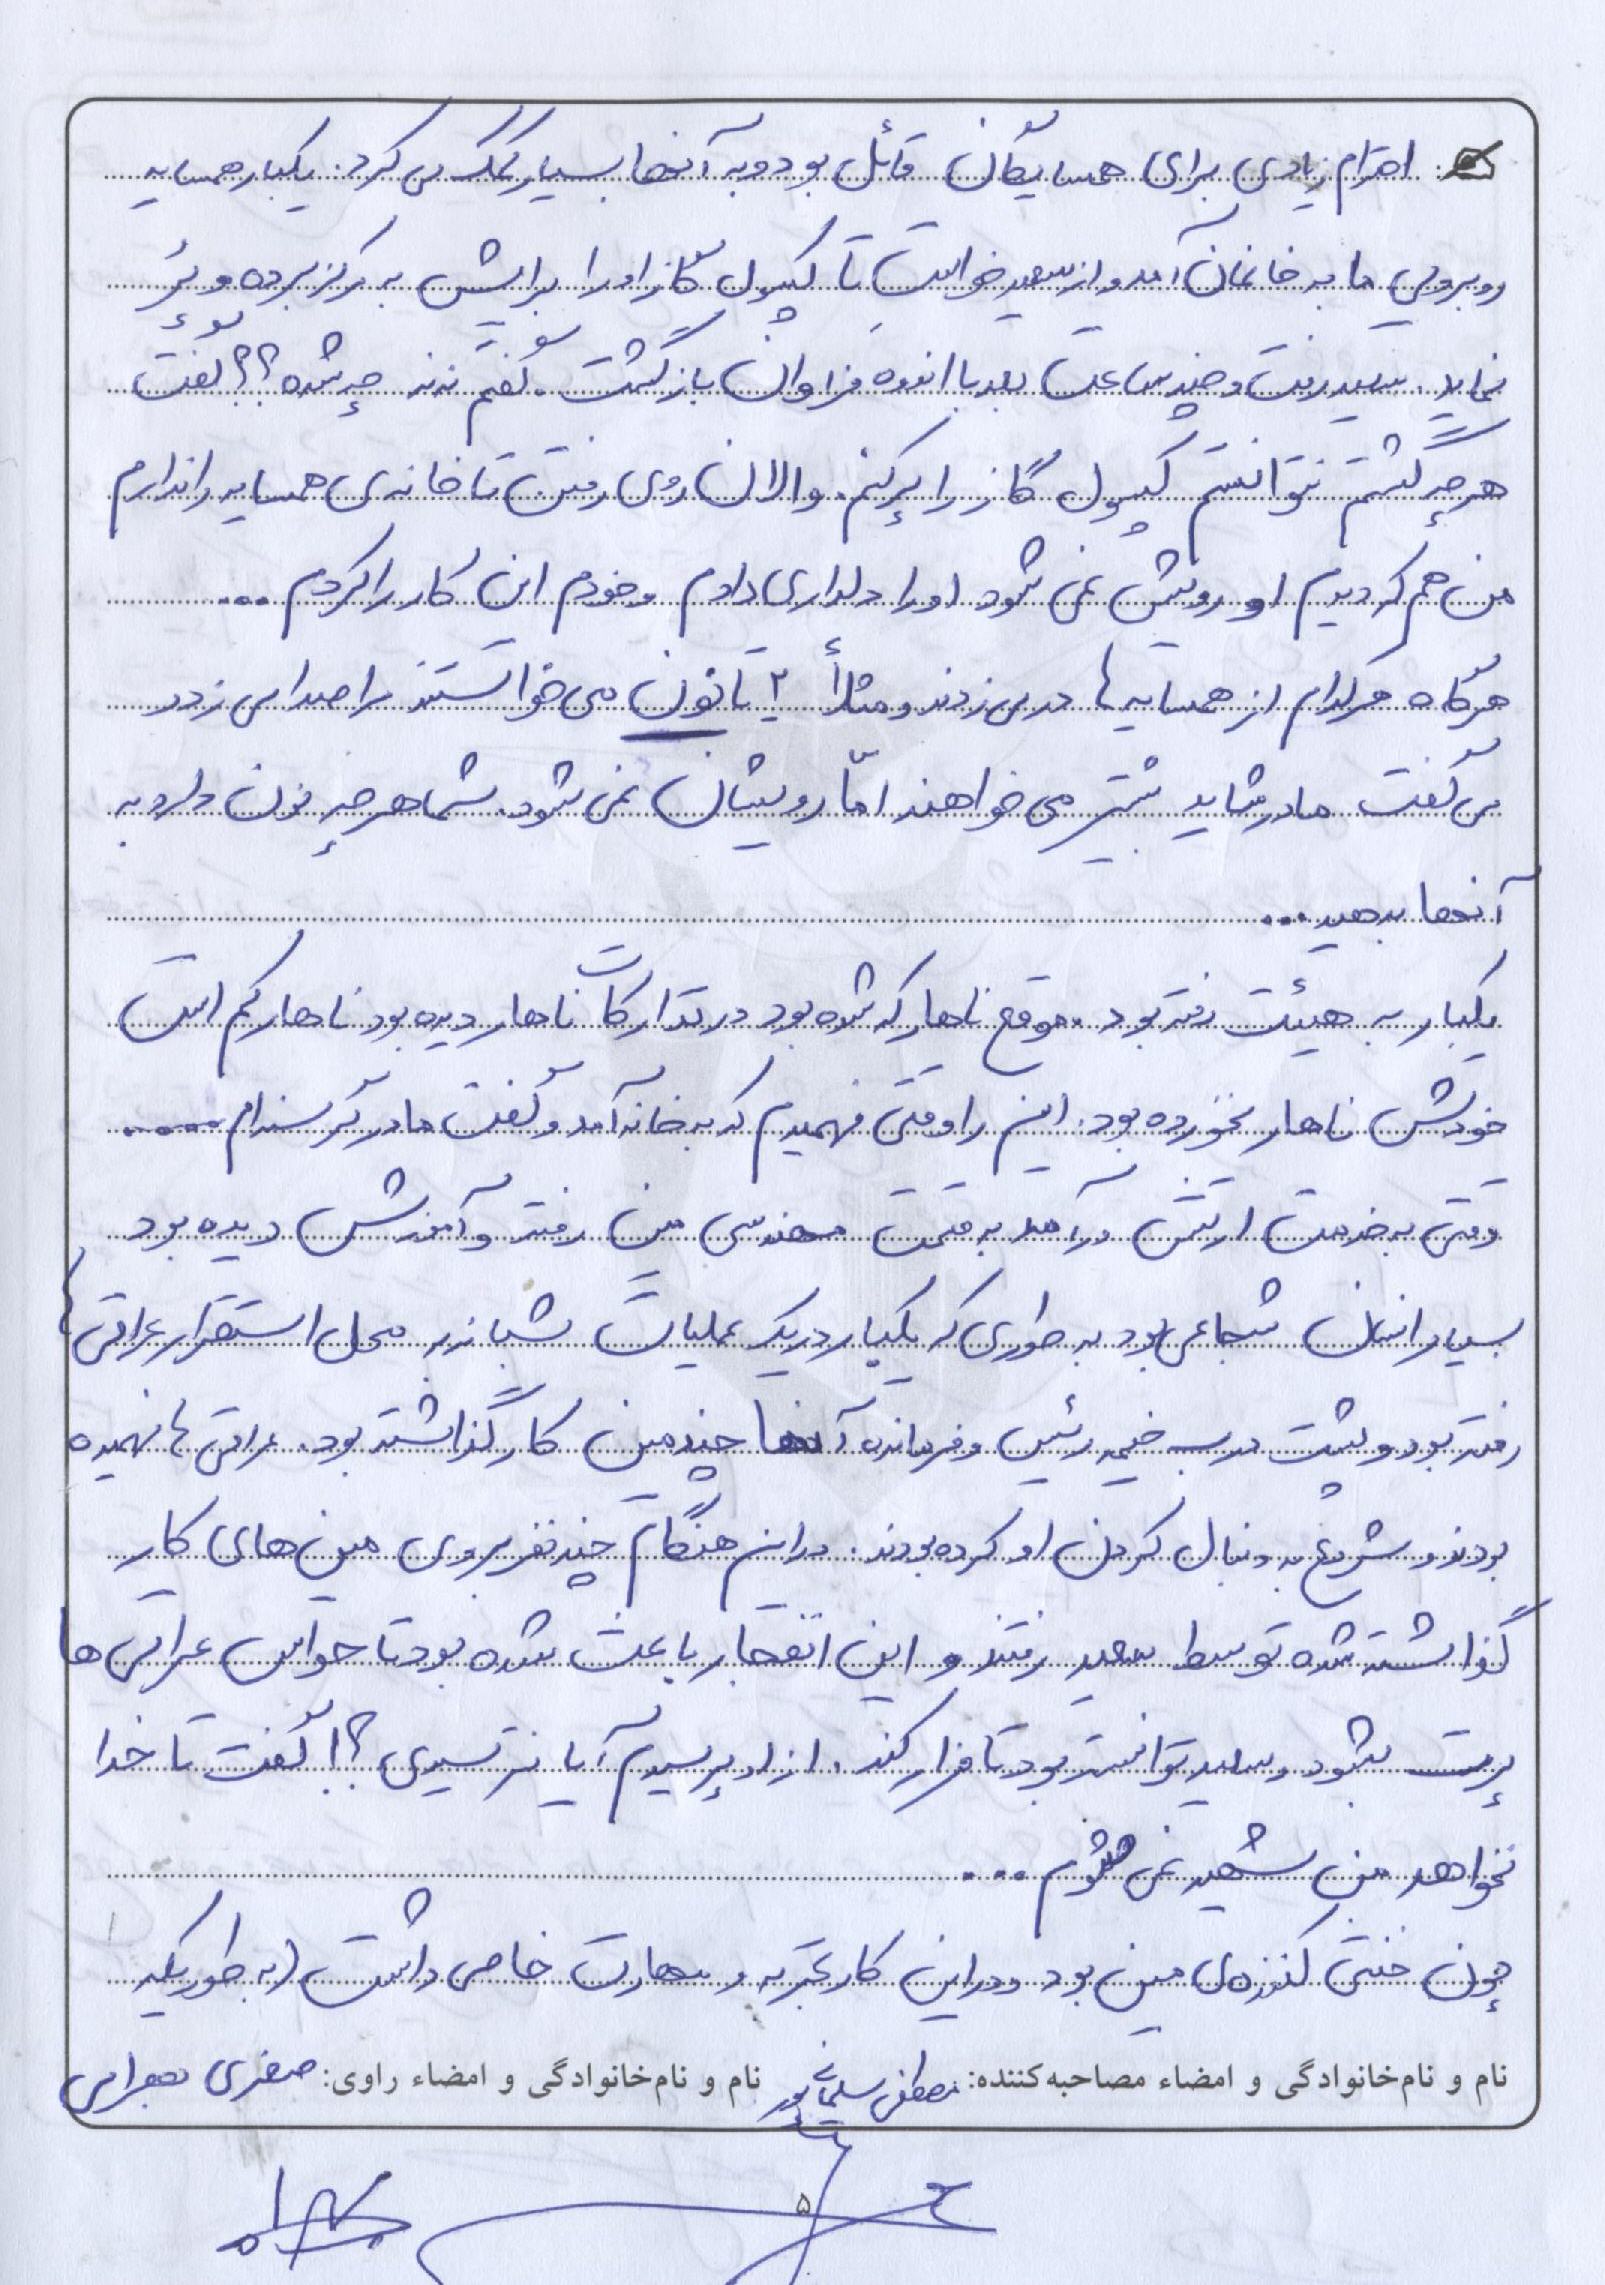 احترام زیادی برای همسایگان قائل بود و به آنها بسیار کمک می کرد. یکبار همسایه
روبرویی ما به خانمان آمد و از سعید خواست تا کپسول گاز او را برایش به مرکز برده و پُر
نماید. سعید رفت و چند ساعت بعد با اندوه فراوان بازگشت. گفتم ننه چه شده؟؟ گفت
هر چه گشتم نتوانستم کپسول گاز را پر کنم. والان روی رفتن تا خانه ی همسایه را ندارم
من هم که دیدم او رویش نمی شود او را دلداری دادم و خودم این کار را کردم ...
هرگاه هرکدام از همسایه ها در می زدند و مثلاً ۲ تا نون می خواستند مرا صدا می زد و
می گفت مادر شاید بیشتر می خواهند امّا رویشان نمی شود. شما هر چه نون دارد به
آنها بدهید ...
یکبار به هیئت رفته بود. موقع ناهار که شده بود در تدارکات ناهار دیده بود ناهار کم است
خودش ناهار نخورده بود. این را وقتی فهمیدم که به خانه آمد و گفت مادر گرسنه ام .....
وقتی به خدمت ارتش درآمد به قسمت مهندسی مین رفته و آموزش دیده بود
بسیار انسان شجاعی بود به طوری که یکبار در یک عملیات شبانه به محل استقرار عراقی ها
رفته بود و پشت درب خیمه رئیس و فرمانده آنها چند مین کار گذاشته بود. عراقی ها فهمیده
بودند و شروع به دنبال کردن او کرده بودند. در این هنگام چند نفر بروی مین های کار
گذاشته شده توسط سعید رفتند و این انفجار باعث شده بود تا حواس عراقی ها
پرت بشود و سعید توانسته بود تا فرار کند. از او پرسیدم آیا نترسیدی؟! گفت تا خدا
نخواهد من شهید نمی شوم ...
چون خنثی کننده ی مین بود و در این کار تجربه و مهارت خاصی داشت (به طوریکه
نام و نام‌خانوادگی و امضاء مصاحبه‌کننده: مصطفی سلیمانی پور نام و نام‌خانوادگی و امضاء راوی: صغری بهرامی
۵